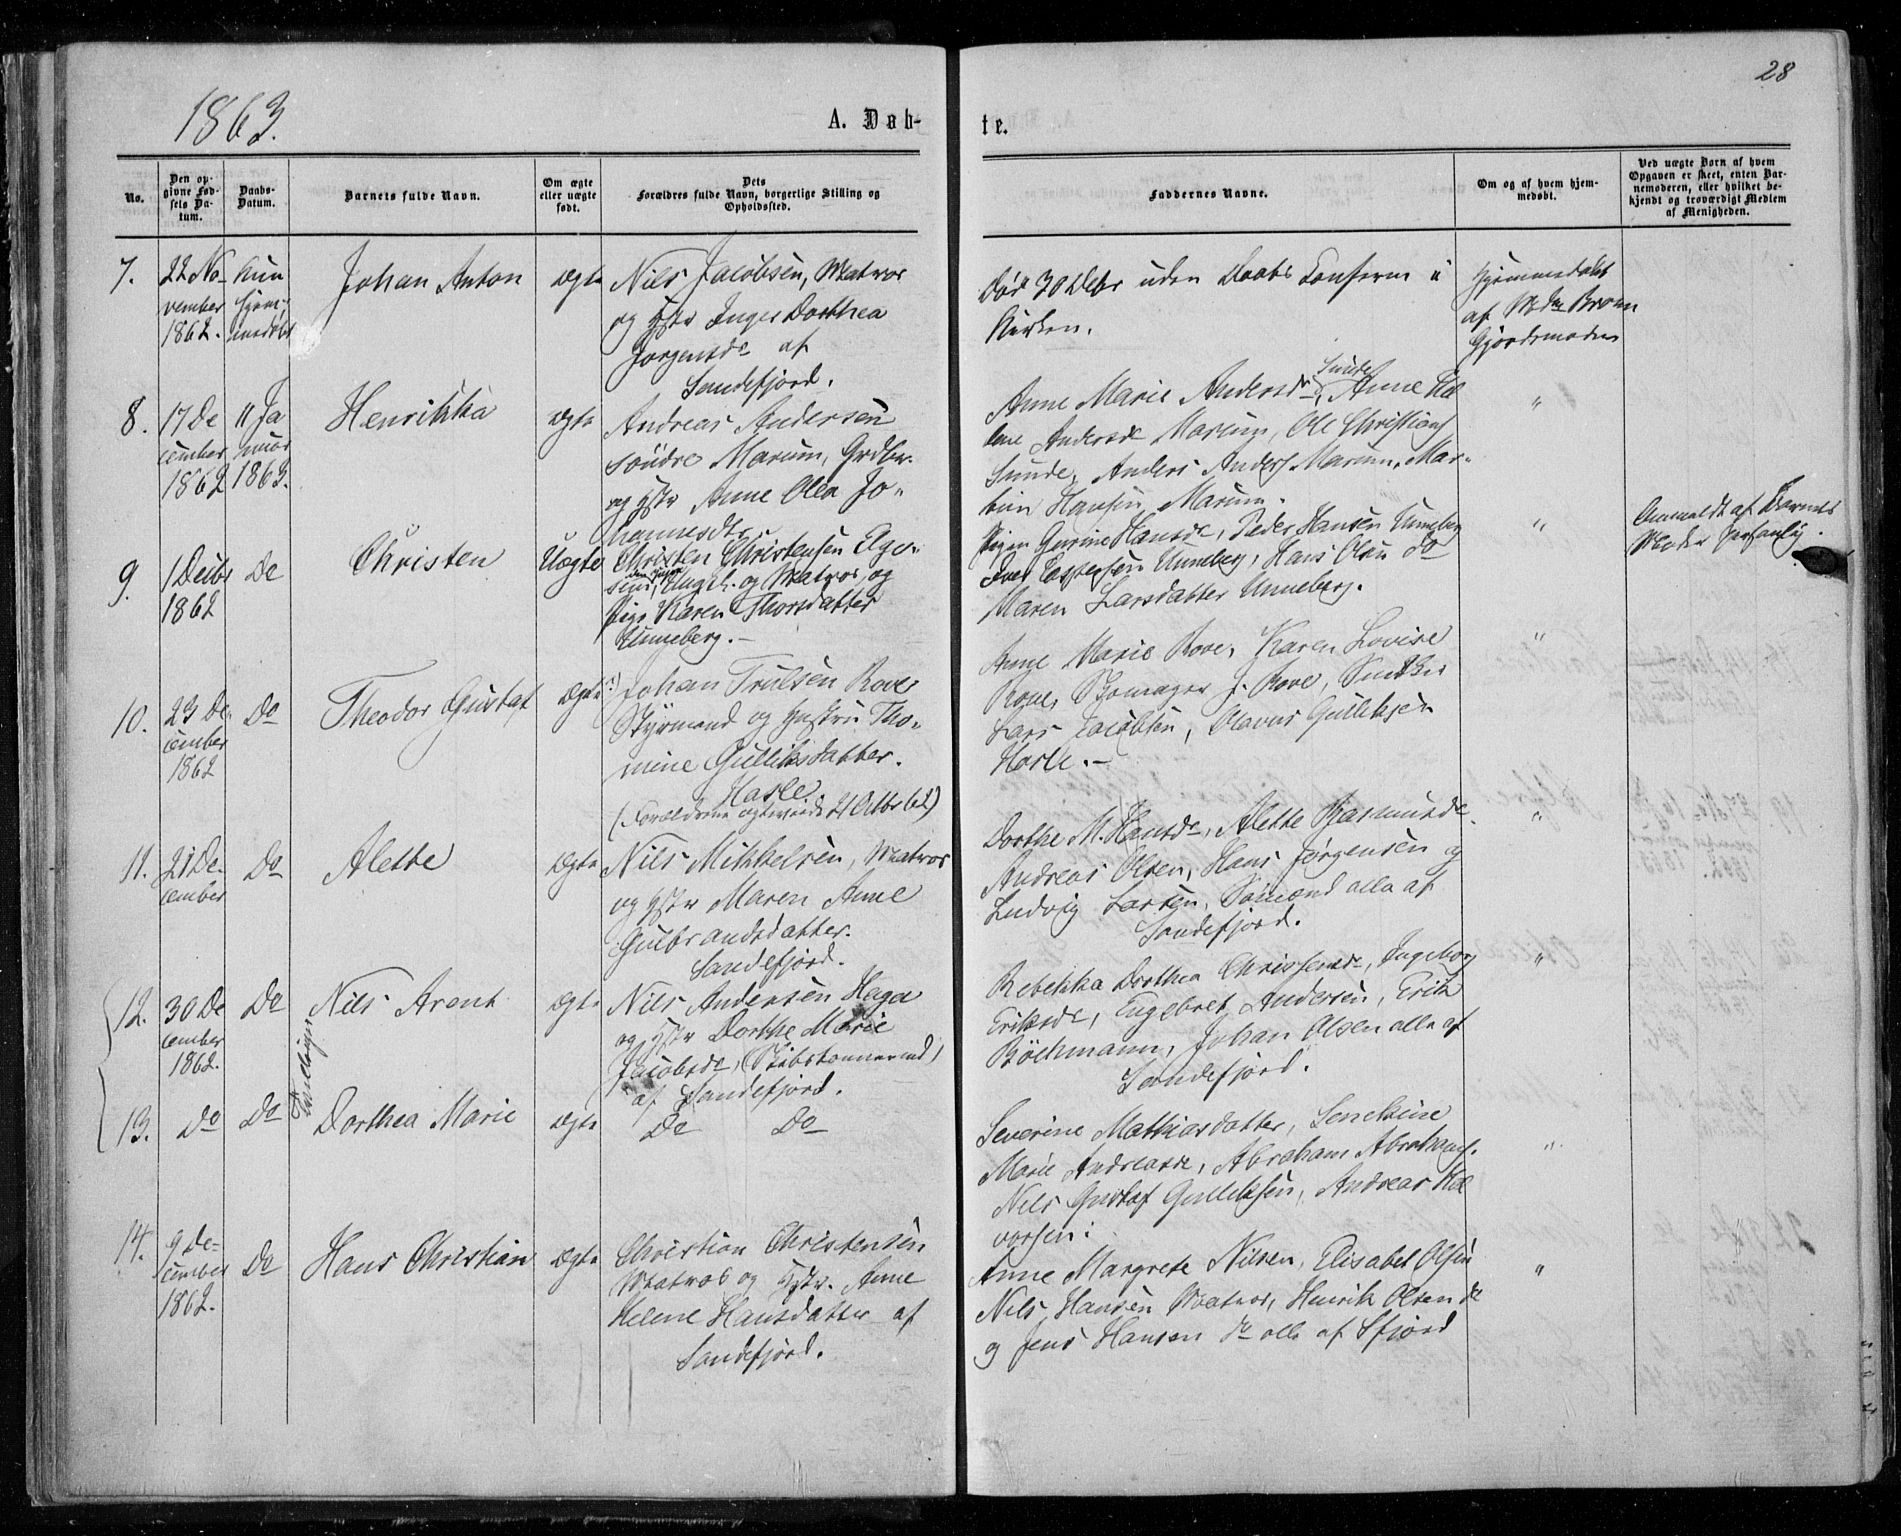 28
1863.
A. Døb-
te.
No.
Den op-
givne Fød-
sels Da-
tum.
Daabs-
Datum.
Barnets fulde Navn.
Om ægte
eller uægte
født.
Dets
Forældres fulde Navn, borgerlige Stilling og
Opholdssted.
Faddernes Navne.
Om og af hvem hjem-
medøbt.
Ved uægte Børn af hvem
Opgaven er skeet, enten Bar-
nemoderen, eller hvilket be-
kjendt og troværdigt Medlem
af Menigheden.
7.
22 No-
vember
1862.
Kun
hjem-
medøbt
Johan Anton
ægte
Nils Jacobsen, Matros
og Hstr Inger Dorthea
Jörgensdr af
Sandefjord.
Död 30 Decbr uden Daabs Conferm i
Kirken.
Hjemmedöbt
af Mdm Bronn
Gjordemoder
8.
17 De
cember
1862
11 Ja
nuar
1863.
Henrikka
ægte
Andreas Andersen
söndre Marum, Grdbr.
og Hstr Anne Olea Jo-
hannesdtr
Anne Marie Andersdr Sunde, Anne He
lene Andersdr Marum, Ole Christians
Sunde, Anders Anders Marum, Mar-
tin Hansen Marum.
"
9.
1 Decbr
1862
Do
Christen
Uægte
Christen Christensen
Ungk. og Matros, og
Pige Karen Thorsdatter
Unneberg.
Pigen Gurine Hansdr, Peder Hansen Unneberg
Unneberg, Hans Olsen do
Maren Larsdatter Unneberg.
"
Anmeldt af Barnets
Moder personlig.
10.
23 De-
cember
1862
Do
Theodor Gustaf
ægte
Johan Trulsen Rove
Styrmand og Hustru Tho-
mine Gulliksdatter.
Hasle.
(Forældrene ægteviede 21 Octbr 62)
Anne Marie Rove, Karen Lovise
Rove, Skomager J. Rove,
Lars Jacobsen, Olavus Gulliksen
Hasle.
"
11.
21 De-
cember
Do
Alette
ægte
Nils Mikkelsen, Matros
og Hstr Maren Anne
Gulbrandsdatter.
Sandefjord.
Dorthe M. Hansdr, Alette Rasmusdr.
Andreas Olsen, Hans Jörgensen og
Ludvig Larsen, Sömænd alle af
Sandefjord.
"
12.
30 De
cember
1862.
Do
Tvillinger
Nils Arent
ægte
Nils Andersen Haga
og Hstr Dorthe Marie
Jacobsdr, (Skibstömmermd)
af Sandefjord.
Rebekka Dorthea Christensdr, Ingeborg
Eriksdr, Engebret Andersen, Erik
Böckmann, Johan Olsen alle af
Sandefjord.
"
13.
Do
Do
Dorthea Marie
ægte
Do Do
Severine Mathiasdatter,
Marie Andreasdr, Abraham Abrahams.
Nils Gustaf Gulliksen, Andreas Hal
vorsen.
"
14.
9 De-
cember
1862.
Do
Hans Christian
ægte
Christian Christensen
Matros og Hstr. Anne
Helene Hansdatter af
Sandefjord.
Anne Margrete Nilsen, Elisabet Olsen
Nils Hansen Matros, Henrik Olsen do
og Jens Hansen do alle af Sfjord
"